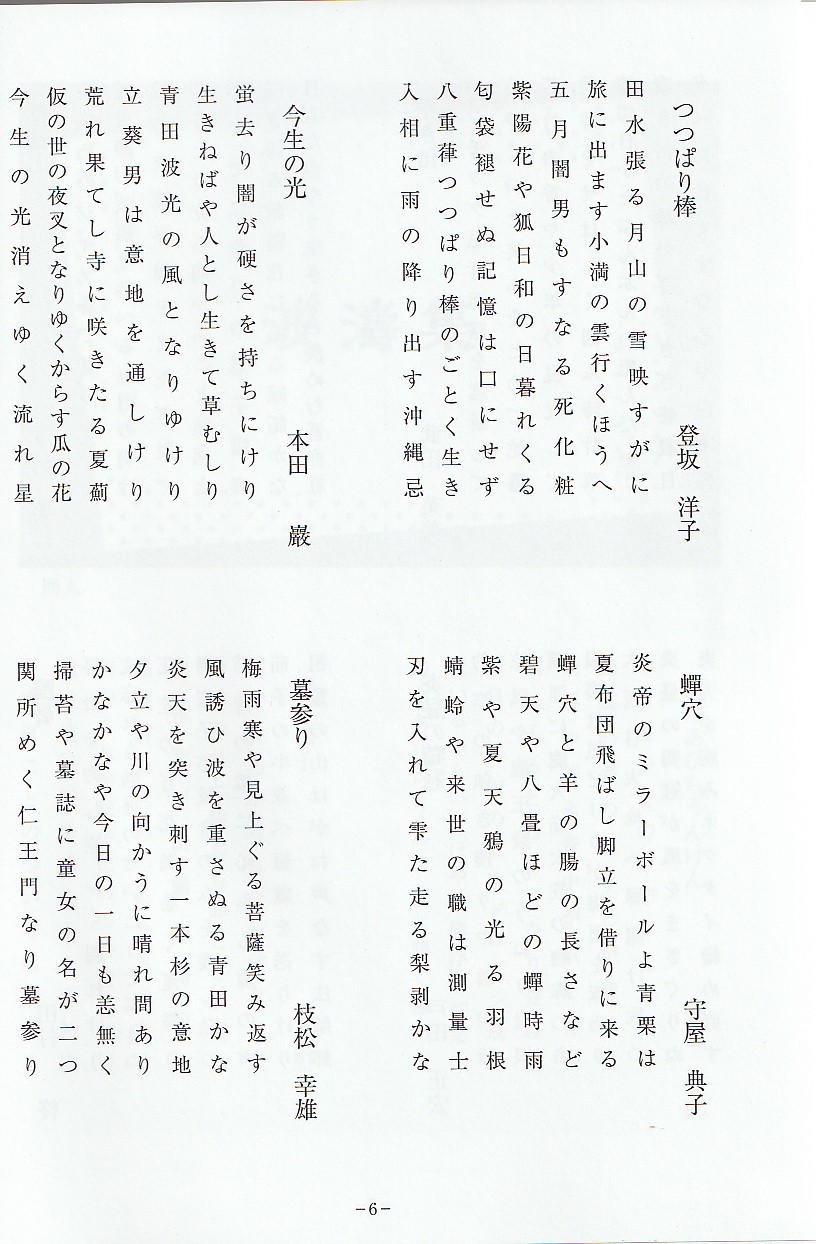 つっぱり棒
登坂 洋子
田水張る月山の雪映すがに
旅に出ます小満の雲行くほうへ
五月闇男もすなる死化粧
紫陽花や狐日和の日暮れくる
匂袋褪せぬ記憶は口にせず
八重葎つっぱり棒のごとく生き
入相に雨の降り出す沖縄忌
今生の光
本田 巌
蛍去り闇が硬さを持ちにけり
生きねばや人とし生きて草むしり
青田波光の風となりゆけり
立葵男は意地を通しけり
荒れ果てし寺に咲きたる夏薊
仮の世の夜叉となりゆくからす瓜の花
今生の光消えゆく流れ星
蟬穴
守屋 典子
炎帝のミラーボールよ青栗は
夏布団飛ばし脚立を借りに来る
蟬穴と羊の腸の長さなど
碧天や八畳ほどの蟬時雨
紫や夏天鴉の光る羽根
蜻蛉や来世の職は測量士
刃を入れて雫た走る梨剥かな
墓参り
枝松 幸雄
梅雨寒や見上ぐる菩薩笑み返す
風誘ひ波を重さぬる青田かな
炎天を突き刺す一本杉の意地
夕立や川の向かうに晴れ間あり
かなかなや今日の一日も恙無く
掃苔や墓誌に童女の名が二つ
関所めく仁王門なり墓参り
−6−